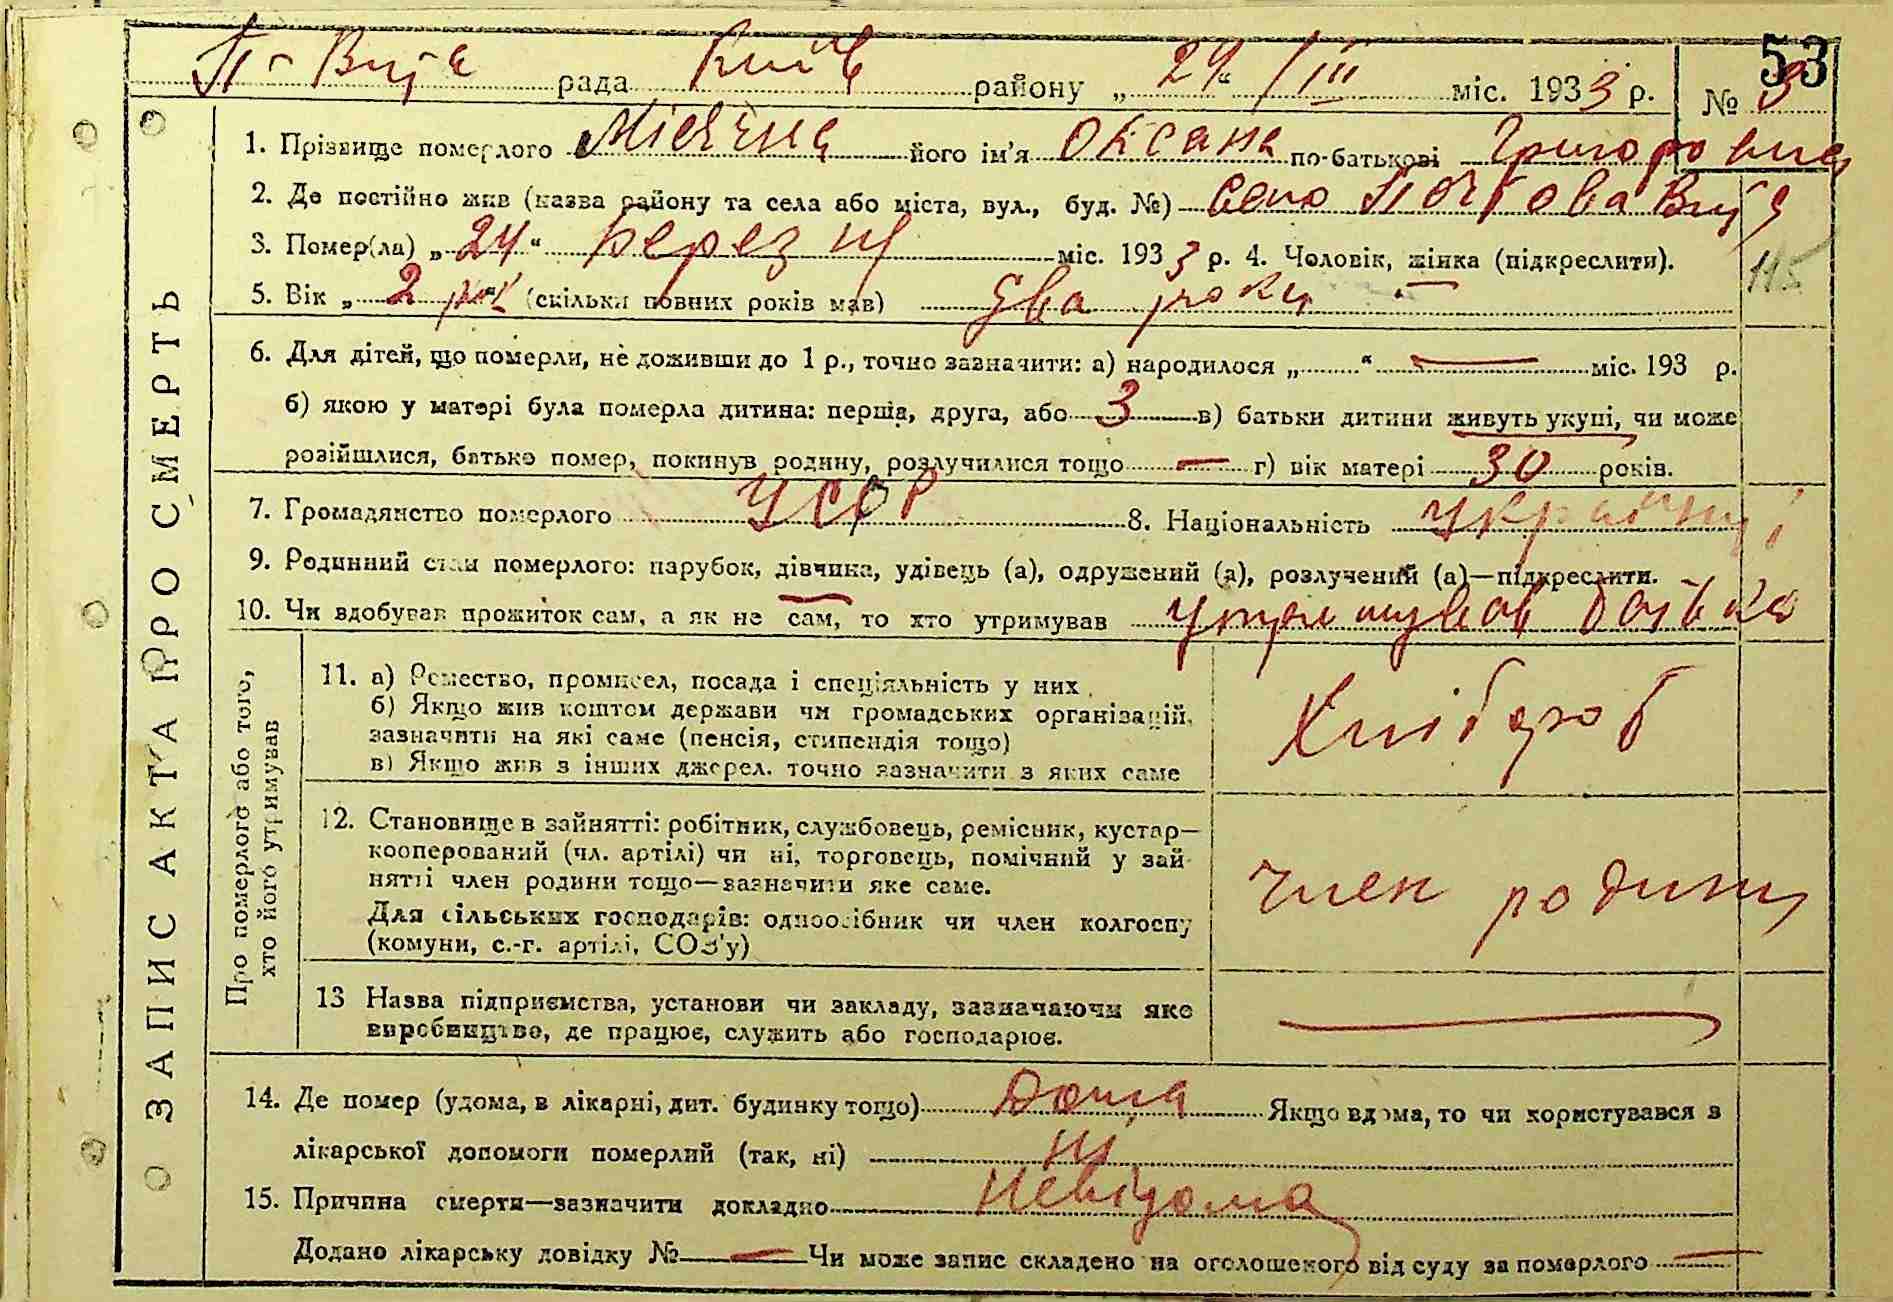 53
П-Віта рада Київ району „24“ III міс. 1933 р. № 3
1. Прізвище померлого його ім'я Оксана по-батькові Григоровна
2. Де постійно жив (назва району та села або міста, вул., буд. №) Село Почтова Віта
3. Помер(ла) „24“ березня міс. 1933 р. 4. Чоловік, жінка (підкреслити).
115
5. Вік „2 рок“ (скільки повних років мав) Два роки
6. Для дітей, що померли, не доживши до 1 р., точно зазначити: а) народилося „ “ — міс. 193 р.
б) якою у матері була померла дитина: перша, друга, або 3 в) батьки дитини живуть укупі, чи може
розійшлися, батько помер, покинув родину, розлучилися тощо — г) вік матері 30 років.
7. Громадянство померлого УСРР 8. Національність
9. Родинний стан померлого: парубок, дівчина, удівець (а), одружений (а), розлучений (а)—підкреслити.
10. Чи вдобував прожиток сам, а як не сам, то хто утримував утримував батько
ЗАПИС АКТА ПРО СМЕРТЬ
Про померлого або того,
хто його утримував
11. а) Ремество, промисел, посада і спеціяльність у них
б) Якщо жив коштом держави чи громадських організацій,
зазначити на які саме (пенсія, стипендія тощо)
в) Якщо жив з інших джерел, точно зазначити з яких саме
Хлібороб
12. Становище в зайнятті: робітник, службовець, ремісник, кустар—
кооперований (чл. артілі) чи ні, торговець, помічний у зай-
нятті член родини тощо—зазначити яке саме.
Для сільських господарів: одноосібник чи член колгоспу
(комуни, с.-г. артілі, СОЗ'у)
член родини
13 Назва підприємства, установи чи закладу, зазначаючи яке
виробництво, де працює, служить або господарює.
—
14. Де помер (удома, в лікарні, дит. будинку тощо) Дома Якщо вдома, то чи користувався з
лікарської допомоги померлий (так, ні) ні
15. Причина смерти—зазначити докладно невідома
Додано лікарську довідку № — Чи може запис складено на оголошеного від суду за померлого —